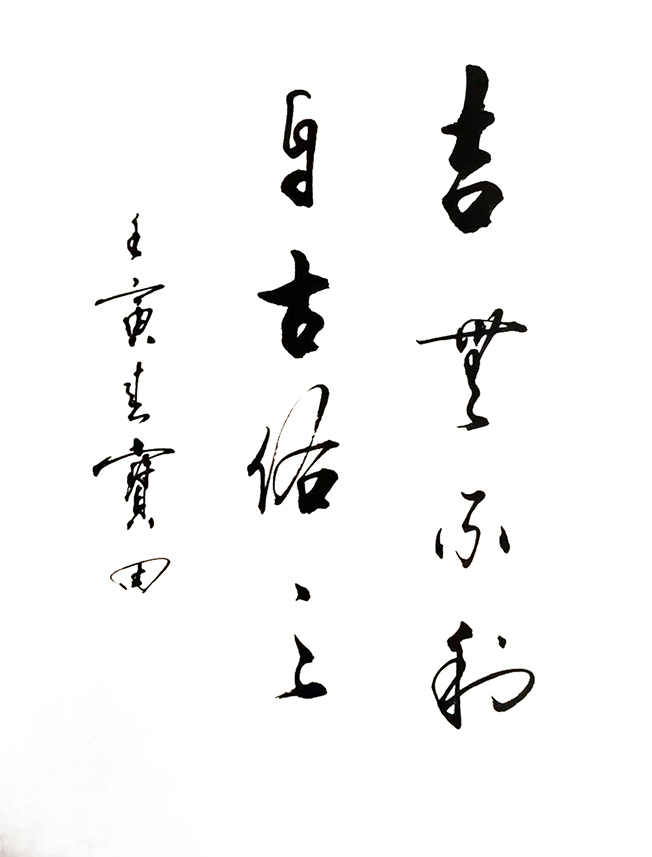 吉無不利
自古佑之
壬寅春寶田